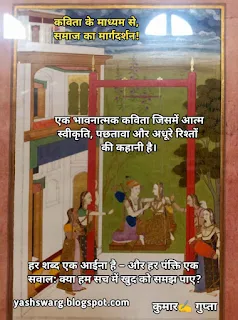 कविता के माध्यम से,
समाज का मार्गदर्शन!
एक भावनात्मक कविता जिसमें आत्म
स्वीकृति, पछतावा और अधूरे रिश्तों
की कहानी है।
हर शब्द एक आईना है – और हर पंक्ति एक
सवाल: क्या हम सच में खुद को समझ पाए?
yashswarg.blogspot.com
कुमार✍️ गुप्ता